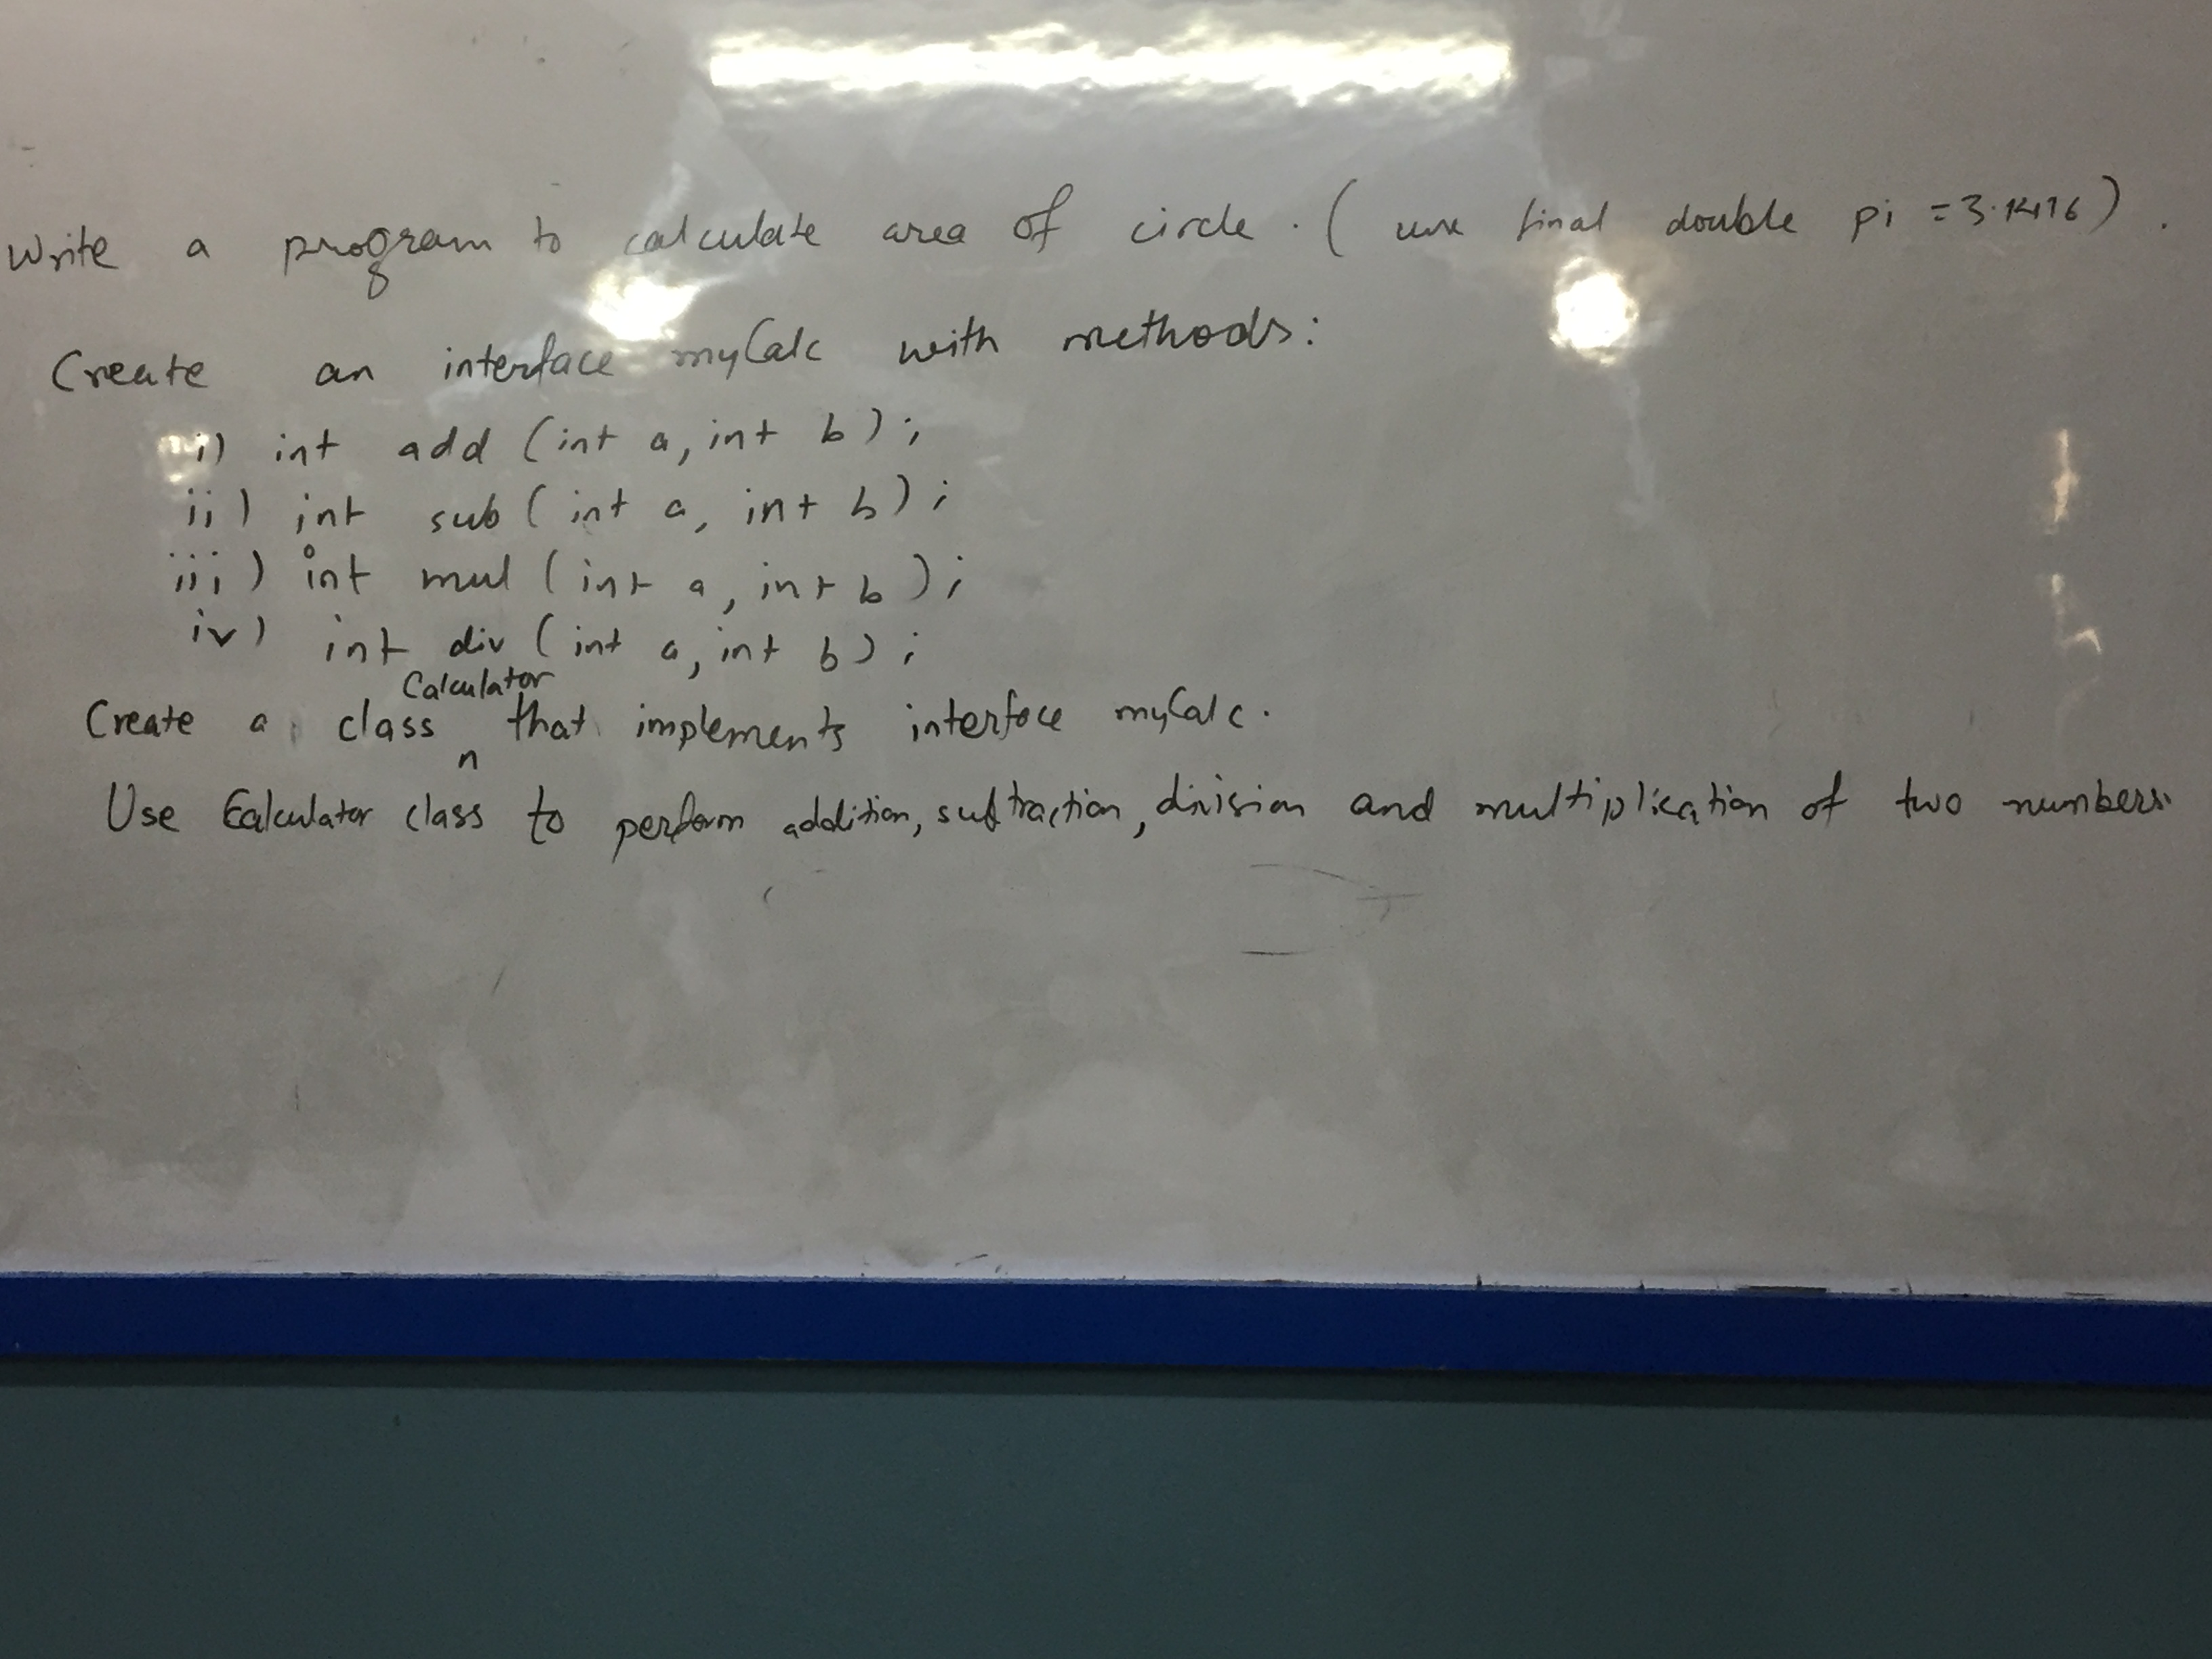 Write a program to calculate area of circle. (use final double pi = 3.1416).
Create an interface myCalc with methods:
i) int add (int a, int b);
ii) int sub (int a, int b);
iii) int mul (int a, int b);
iv) int div (int a, int b);
Calculator
Create a class that implements interface myCalc.
Use Calculator class to perform addition, subtraction, division and multiplication of two numbers.